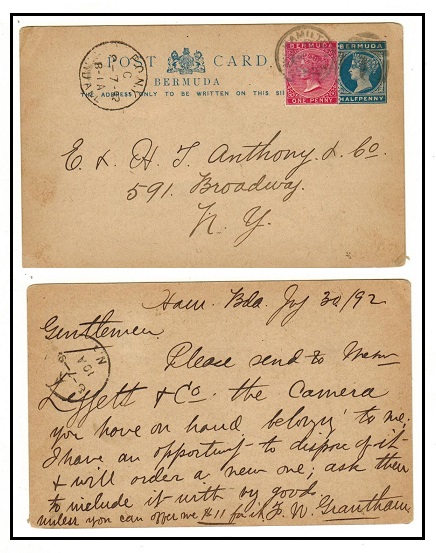 POST CARD.
BERMUDA
THE ADDRESS ONLY TO BE WRITTEN ON THIS SI
HAMILT
BERMUDA
ONE PENNY
BERMUDA
HALFPENNY
E. & H. T. Anthony & Co.
591. Broadway.
N. Y.
Ham. Bda. Jy 30/92
Gentlemen
Please send to Messrs
& Co. the Camera
you have on hand belong'g to me;
I have an opportunity to dispose of it
& will order a new one; ask them
to include it with my goods
unless you can offer me $11 for it. F. W. Grantham